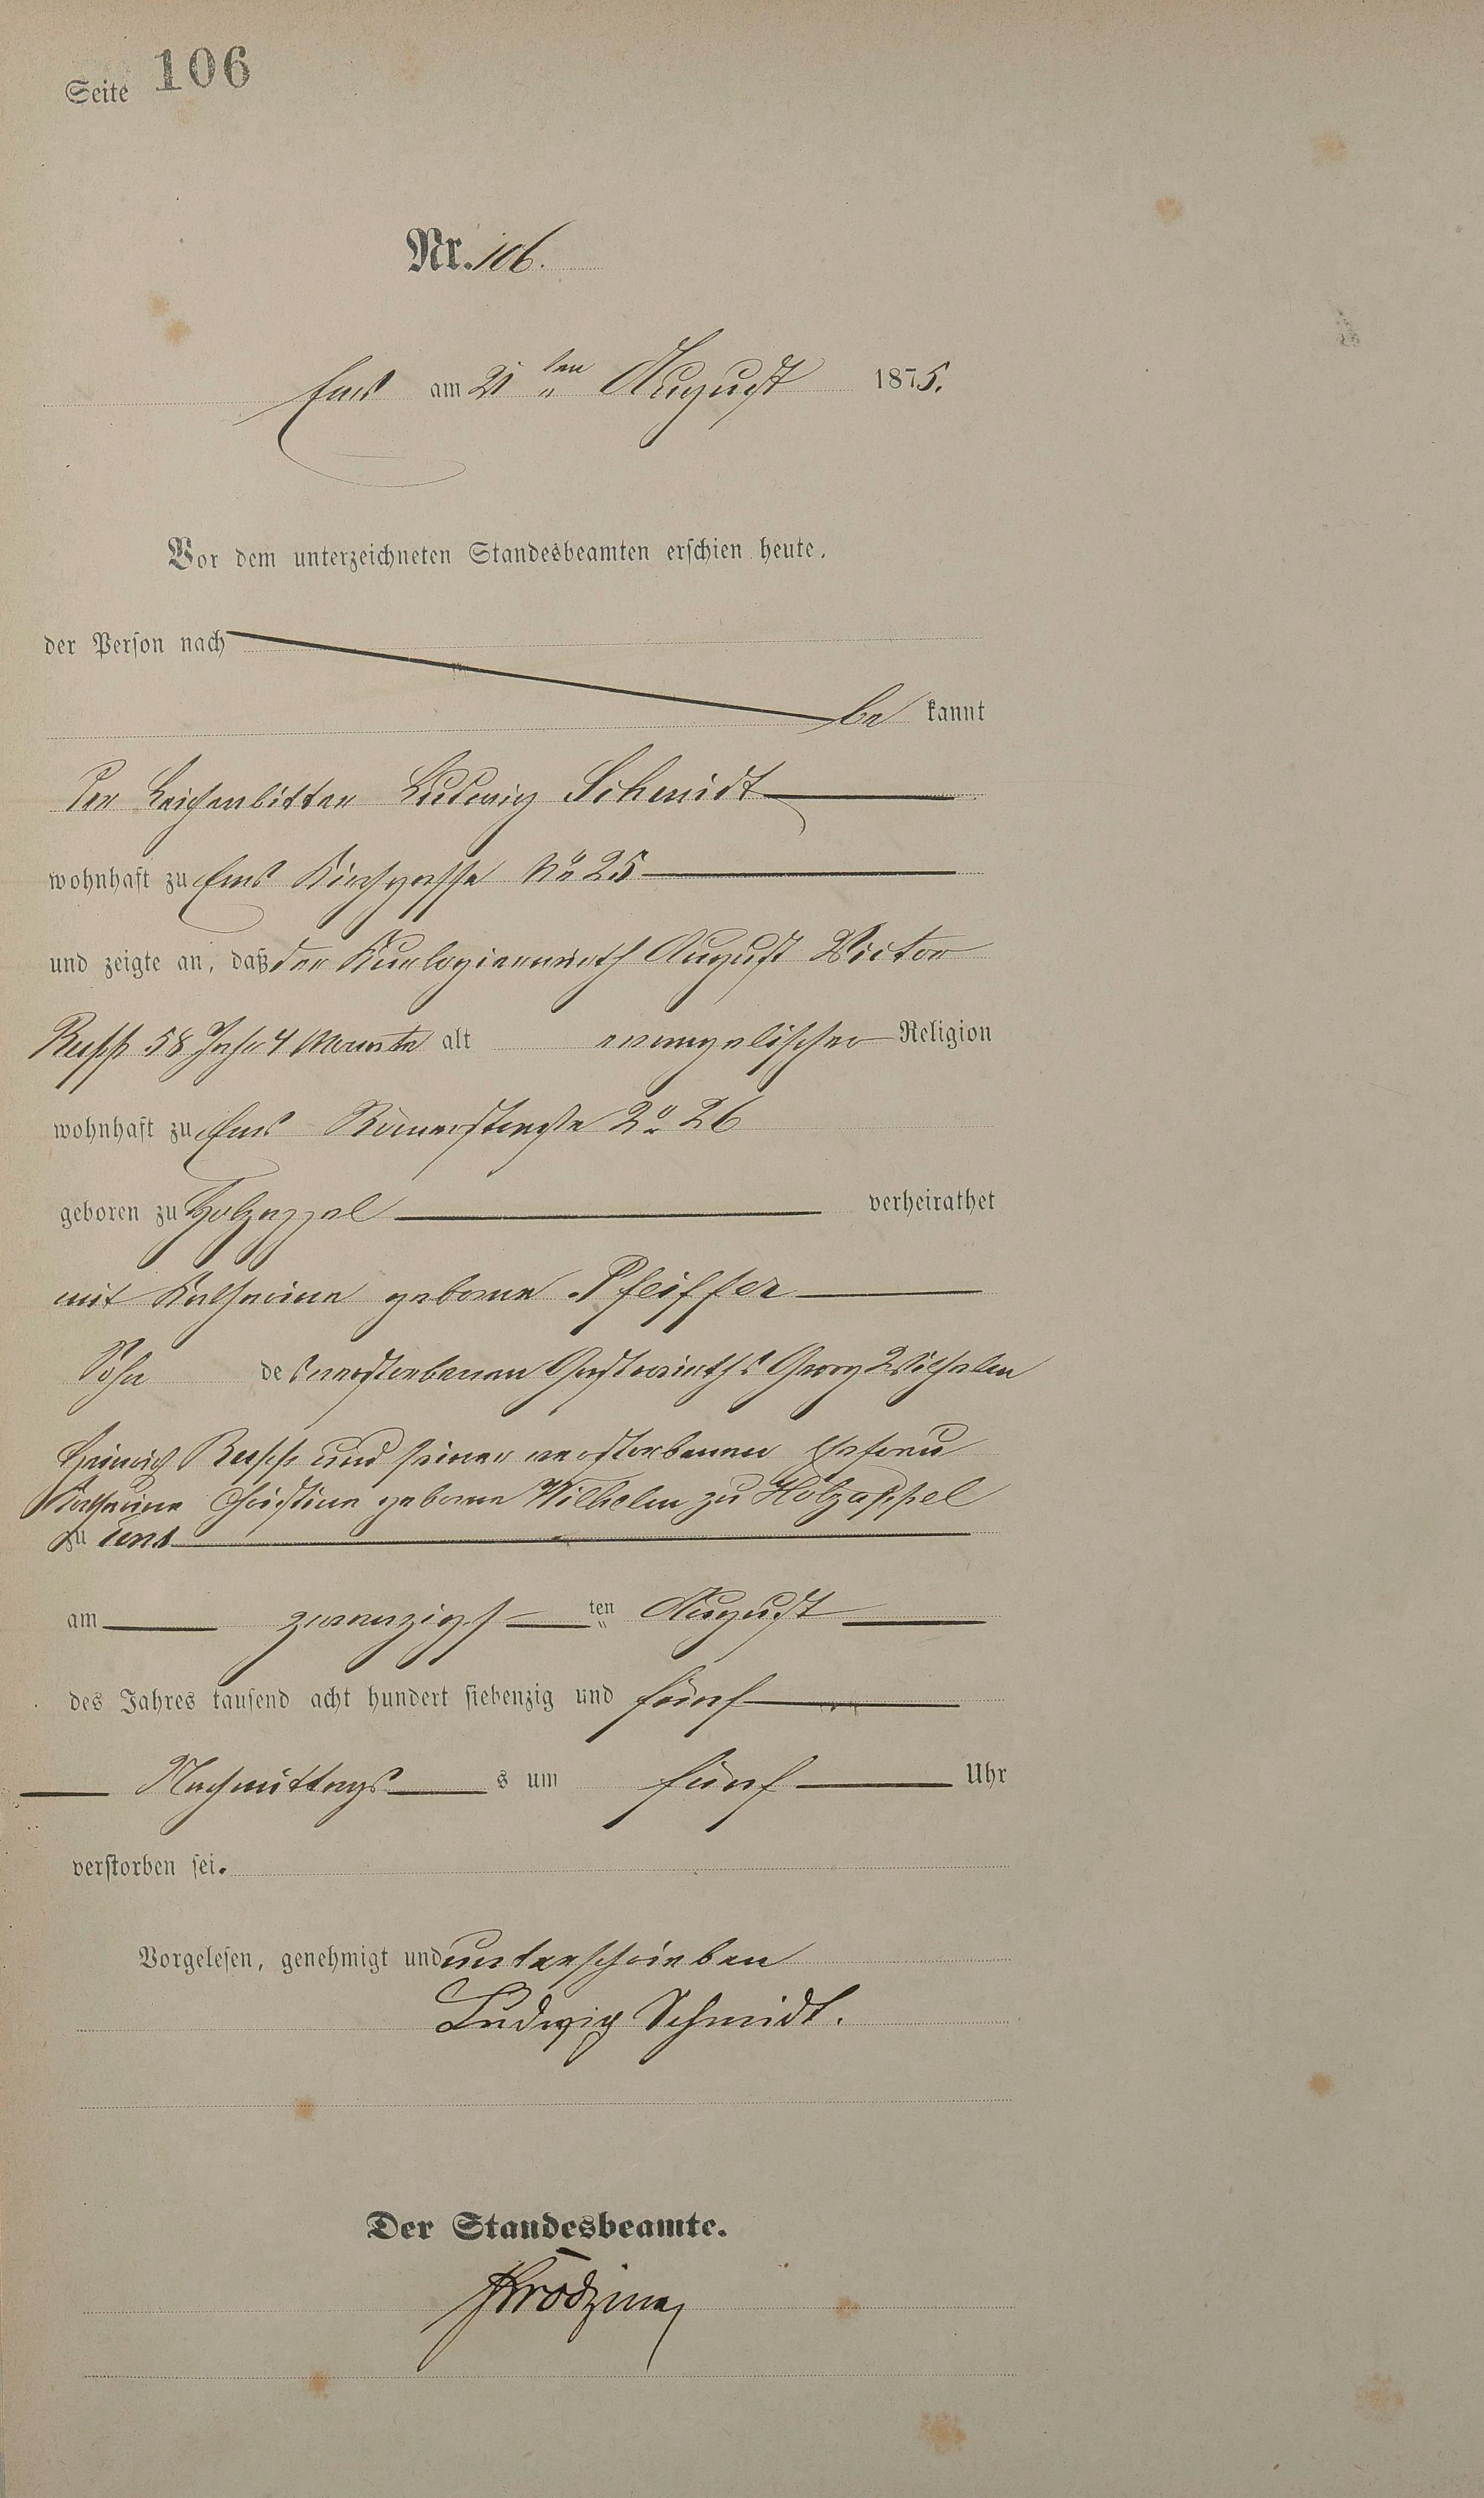 Seite 106
Nr. 106.
Ems am 21 ten August 1875.
Vor dem unterzeichneten Standesbeamten erschien heute,
der Person nach
be kannt
Der Leichenbitter Ludwig Schmidt
wohnhaft zu Ems Kirchgasse No 25
und zeigte an, daß der Kurlogierwirth August Victor
Rupp 58 Jahr 4 Monate alt evangelischer Religion
wohnhaft zu Ems Römerstraße 26
geboren zu Holzappel verheirathet
mit Katharina geborne Pfeiffer
Sohn des verstorbenen Gastwirths Georg Wilhelm
Heinrich Rupp und seiner verstorbenen Ehefrau
Katharine Christine geborne Wilhelm zu Holzappel
zu Ems
am zwanzigs ten August
des Jahres tausend acht hundert siebenzig und fünf
Nachmittags s um fünf Uhr
verstorben sei.
Vorgelesen, genehmigt und unterschrieben
Ludwig Schmidt.
Der Standesbeamte.